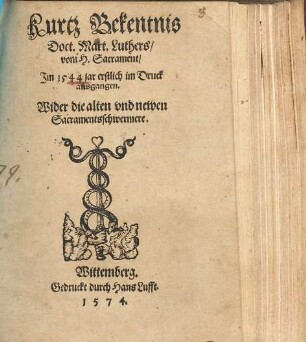 3
Kurtz Bekentnis
Doct. Mart. Luthers/
vom H. Sacrament/
Im 1544 jar erstlich im Druck
ausgangen.
Wider die alten vnd newen
Sacramentsschwermere.
Wittemberg.
Gedruckt durch Hans Lufft.
1574.